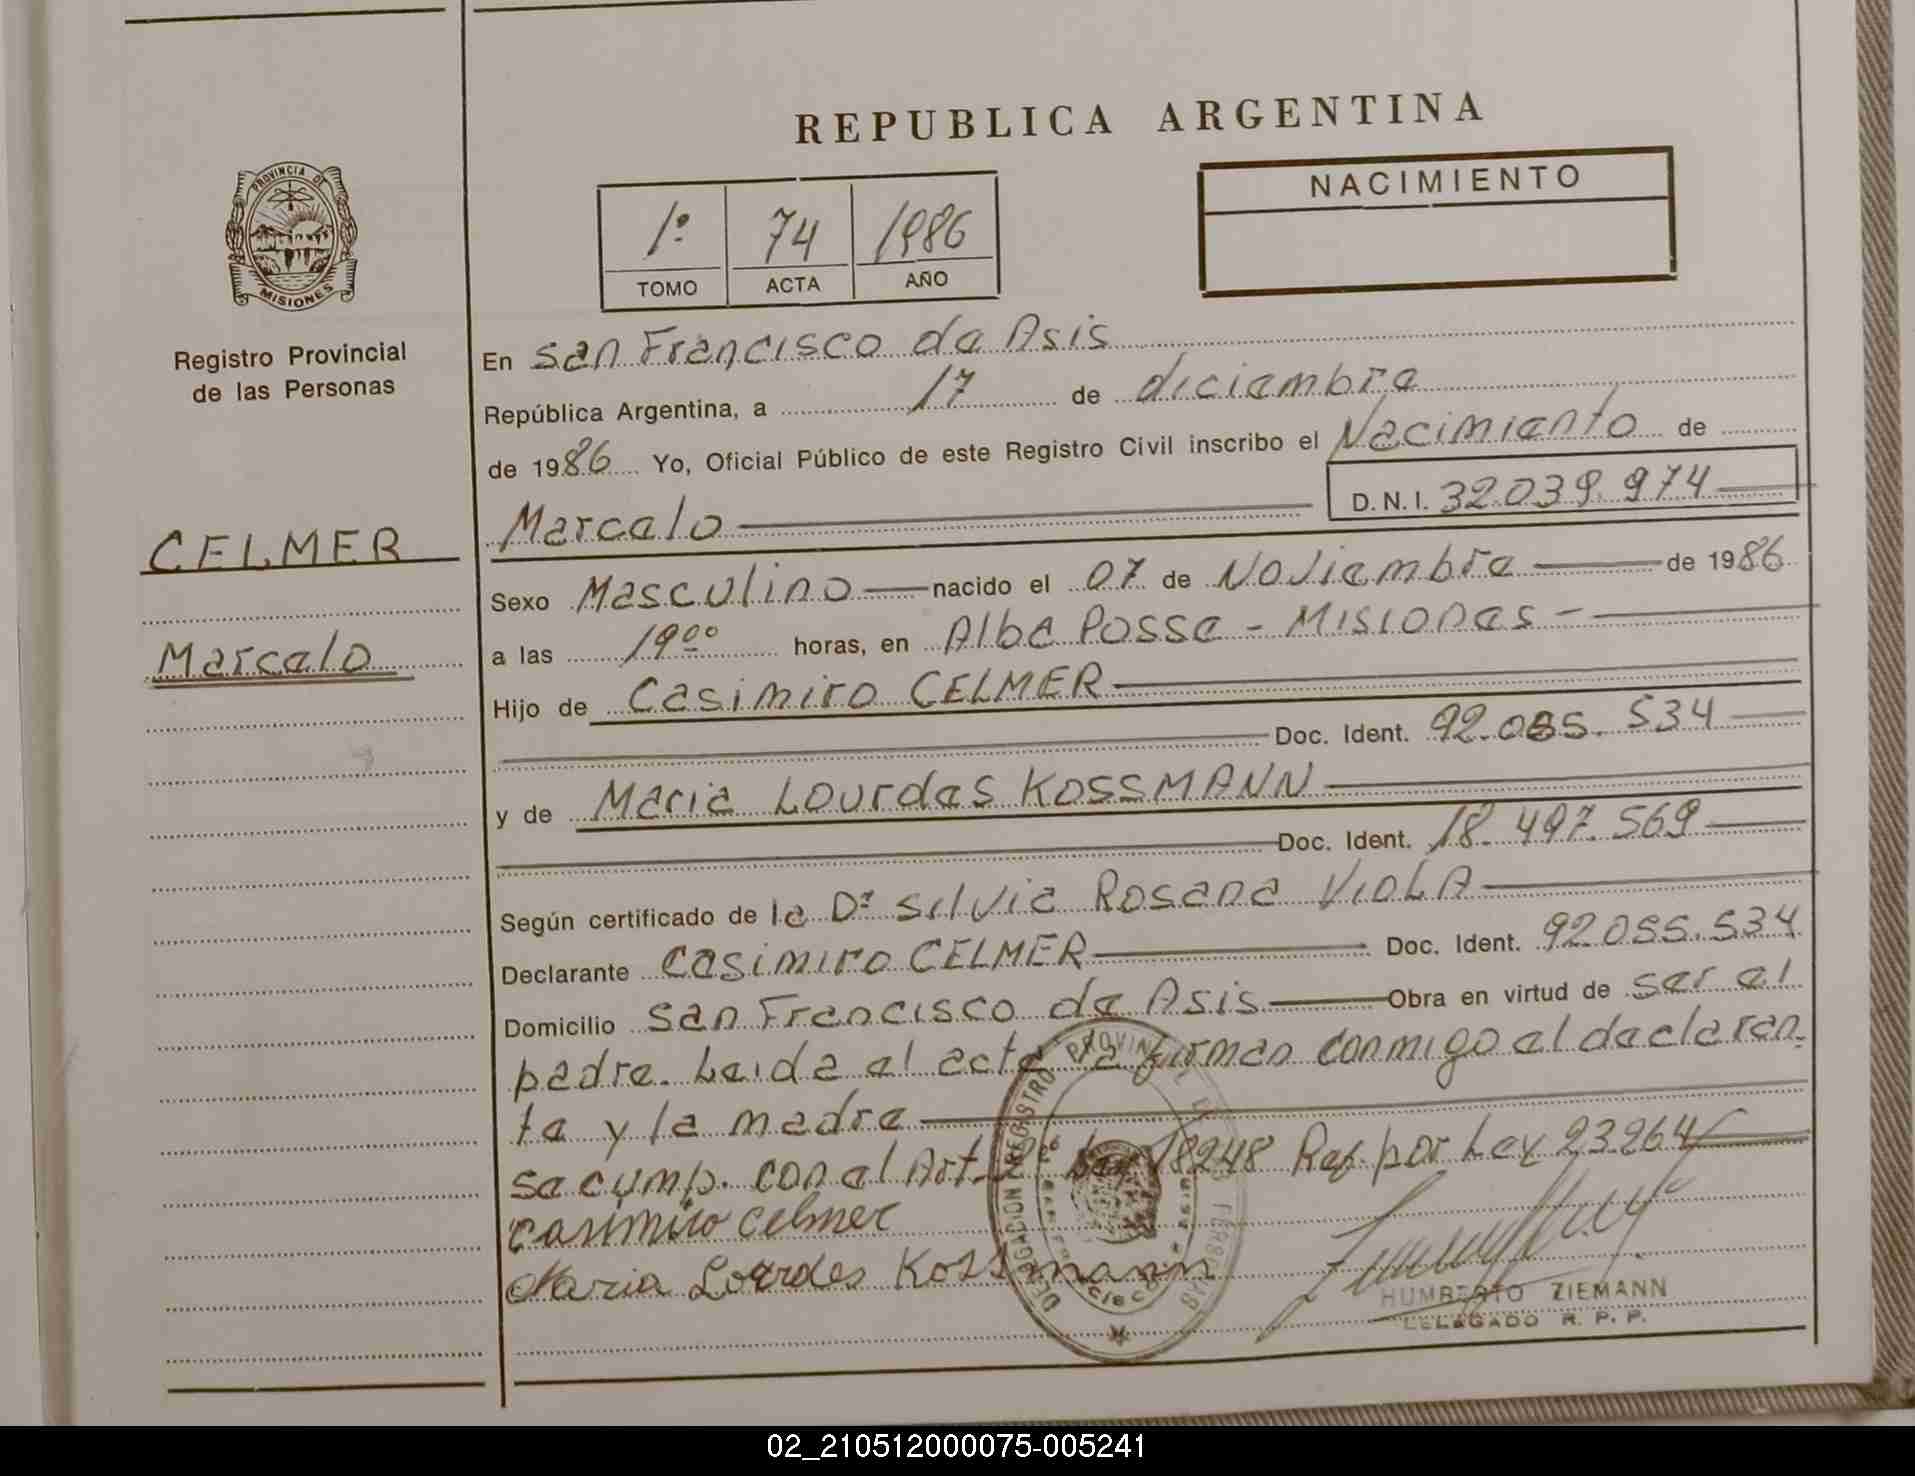 REPUBLICA ARGENTINA
PROVINCIA DE
MISIONES
Registro Provincial
de las Personas
1º 74 1986
TOMO ACTA AÑO
NACIMIENTO
En San Francisco de Asis
República Argentina, a 17 de diciembre
de 1986 Yo, Oficial Público de este Registro Civil inscribo el Nacimiento de
D.N.I. 32.039.974
CELMER
Marcelo
Marcelo
Sexo Masculino nacido el 07 de Noviembre de 1986
a las 19⁰⁰ horas, en Alba Posse - Misiones -
Hijo de Casimiro CELMER
Doc. Ident. 92.055.534
y de Maria Lourdes KOSSMANN
Doc. Ident. 18.497.569
Según certificado de la Dª Silvia Rosana VIOLA
Declarante Casimiro CELMER Doc. Ident. 92.055.534
Domicilio San Francisco de Asis Obra en virtud de ser el
padre. Leida el acta la firman conmigo el declaran-
te y la madre
se cump. con el Art. 18248 Ref. por Ley 23264
Casimiro Celmer
Maria Lourdes Kossmann
DELEGACION REGISTRO PROVINCIAL DE LAS PERSONAS
HUMBERTO ZIEMANN
DELEGADO R. P. P.
02_210512000075-005241